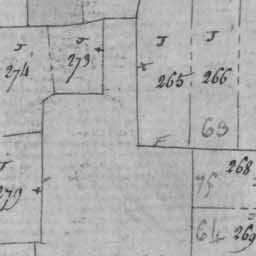 J J J
274 273 265 266
63
268
75
J
279
64 269